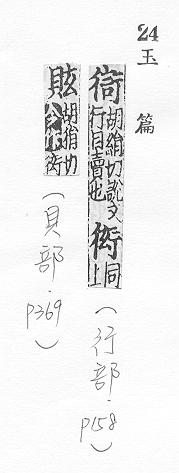 24
玉篇
𧗳胡絹切說文
行且賣也衒同上
(行部.P158)
䝮胡絹切
衒
(貝部.P369)